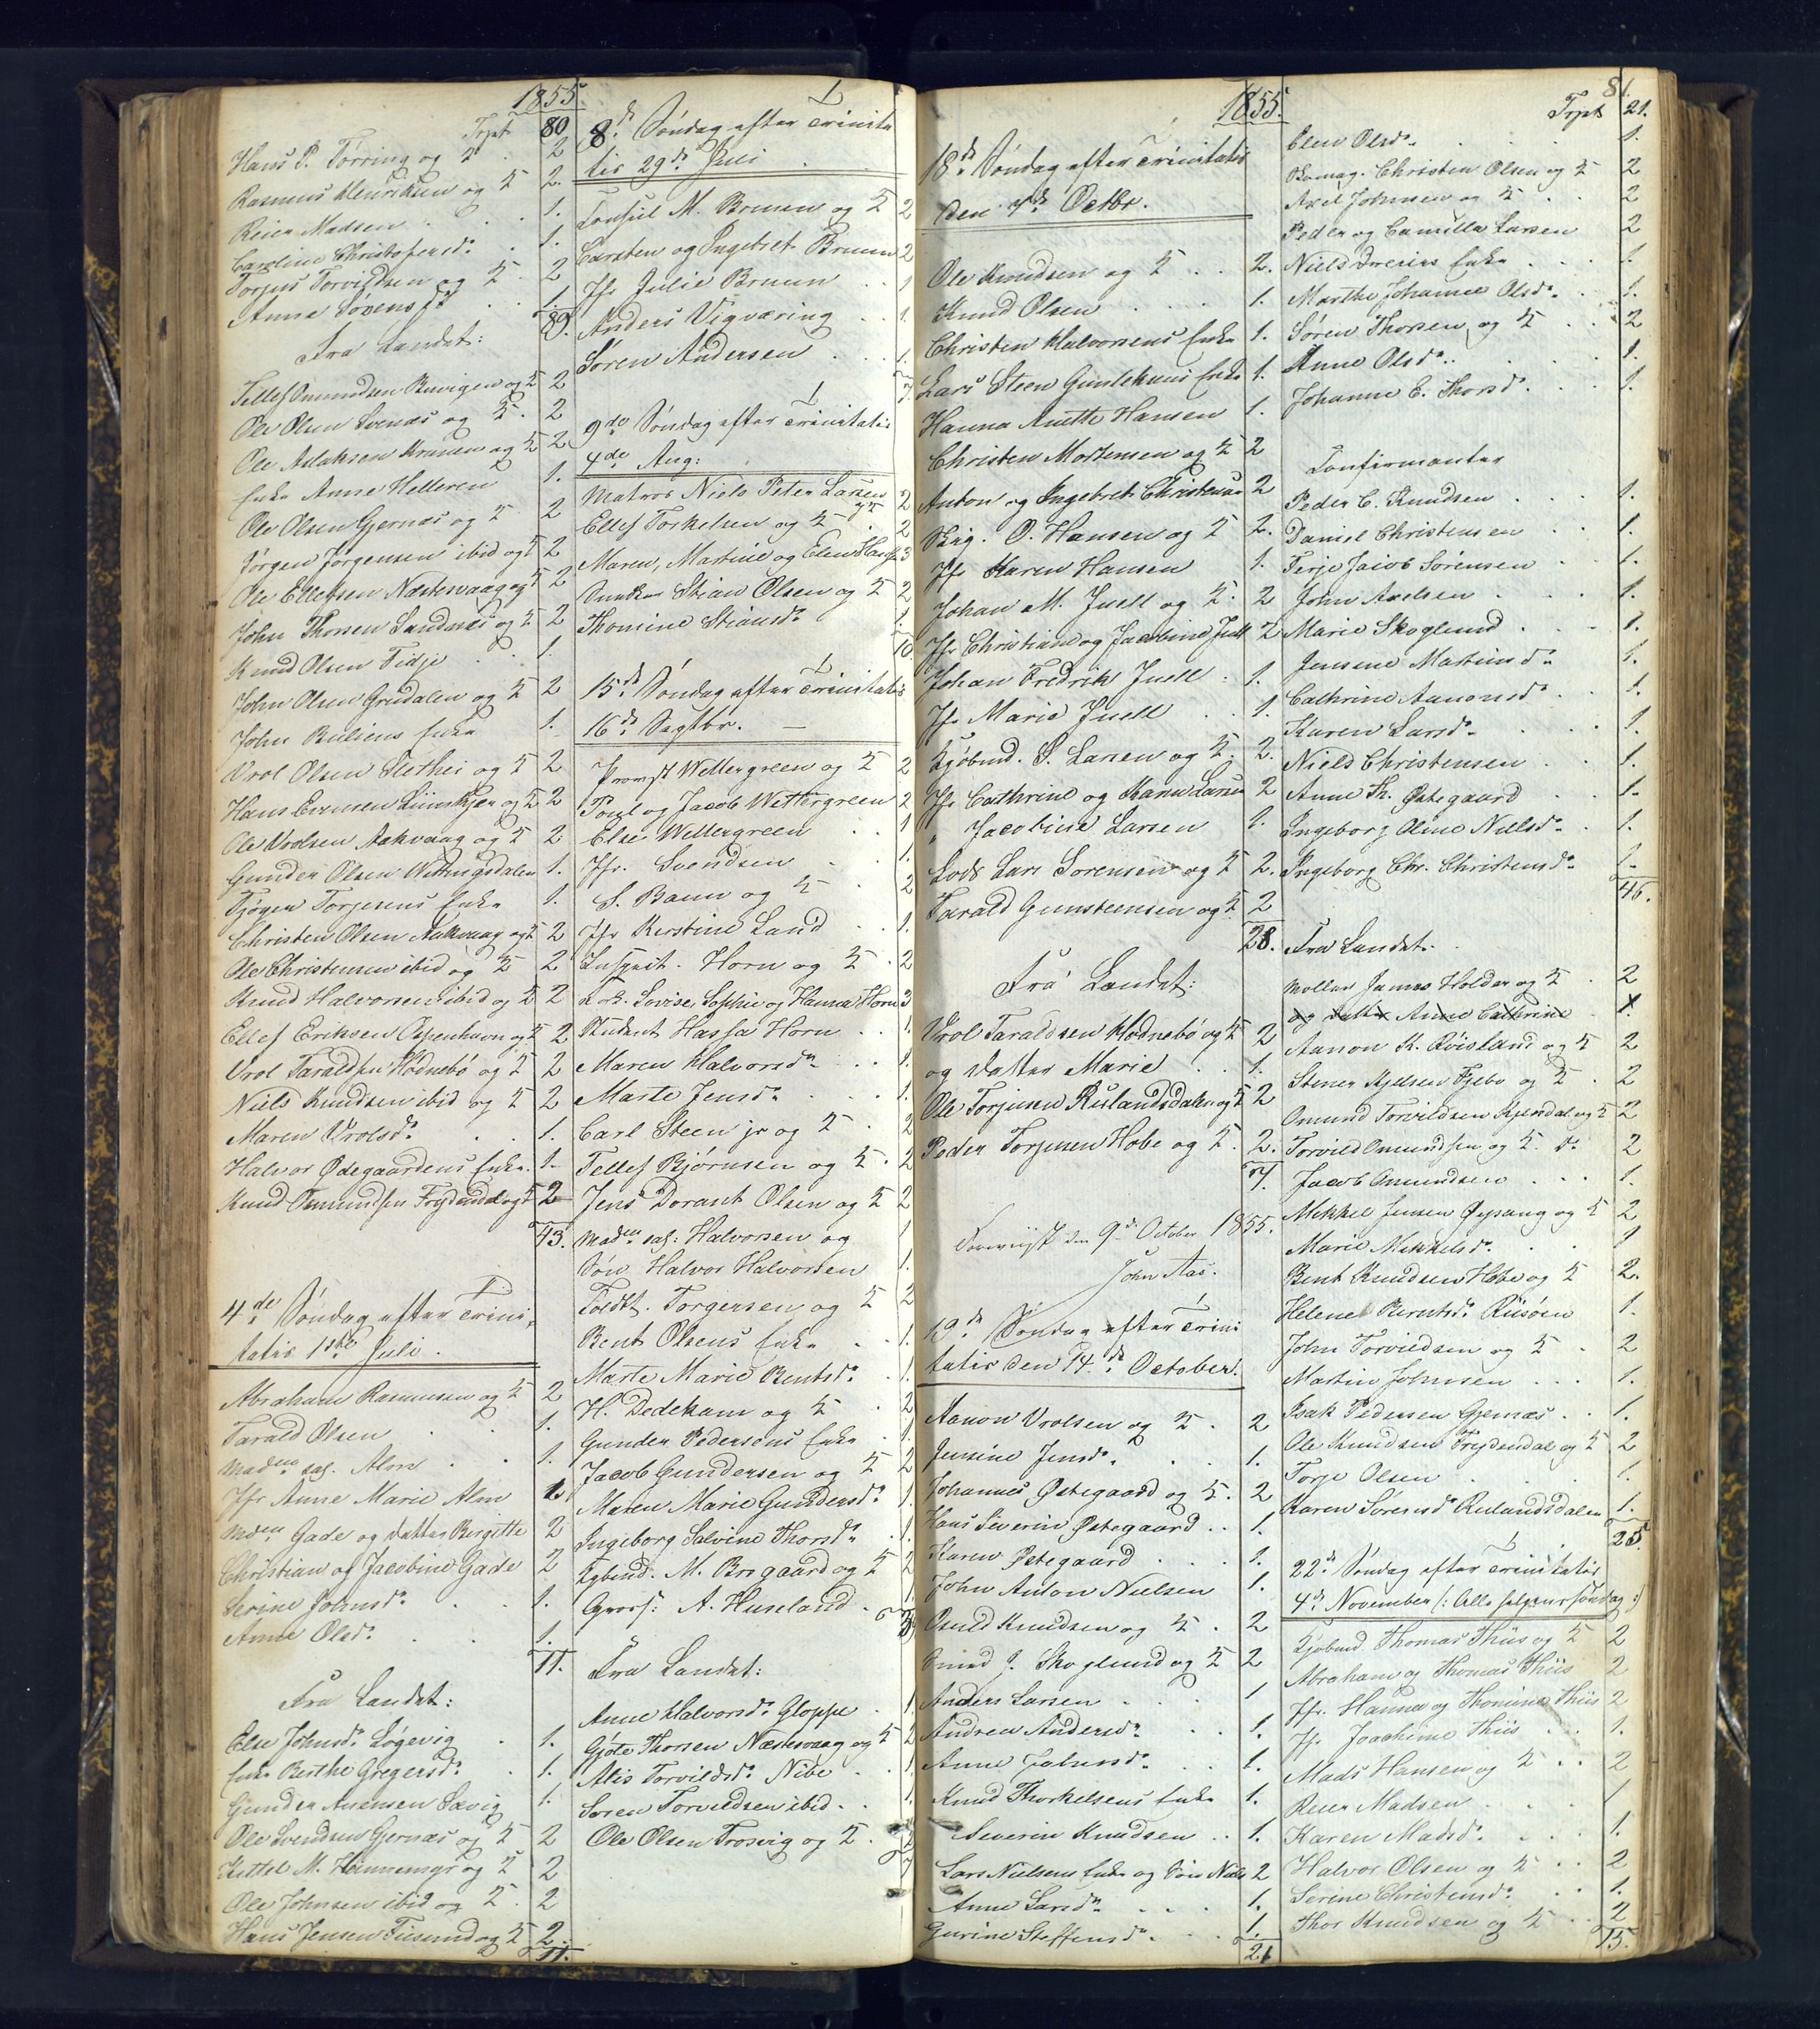 1855.
Trpt 80
Hans P. Tørring og H 2
Rasmus Henriksen og H 2.
Reier Madsen 1.
Caroline Christofersd. 1.
Torjus Torvildsen og H. 2
Anna Sørens 1.
89.
Fra Landet:
Tellef Omundsen og H 2
Ole Olsen Svenæs og H. 2
Ole Aslaksen og H 2
Enke Anne Helleren 1.
Ole Olsen Gjernæs og H 2
Jørgen Jørgensen ibid og H 2
Ole Ellefsen Næstesvaag og H 2
John Thorsen Sandnæs og H 2
Knud Olsen Fidje 1.
John Olsen Grødalen og H 2
John Enke 1.
Vrol Olsen og H 2
Hans og H 2
Ole Vrolsen Aakvaag og H 2
Gunder Olsen 1.
Torjesens Enke 1.
Christen Olsen Aakvaag og H 2
Ole Christensen ibid og H 2
Knud Halvorsen ibid og H 2
Ellef Eriksen og H 2
Vrol Taraldsen Hødnebø og H 2
Niels Knudsen ibid og H 2
Maren Vrolsd. 1.
Halvor Ødegaardens Enke 1.
Knud Omundsen Frydendal og H 2
43.
4de Søndag efter Trini,
tatis 1ste Juli.
Abraham Rasmussen og H 2
Tarald Olsen 1.
Madm sal. Alm 1.
Jfr Anne Marie Alm 1.
Mdm Gade og datter Birgitte 2
Christian og Jacobine Gade 2
Serine Johnsd. 1.
Anne Olsd. 1.
11.
Fra Landet:
Else Johnsd. Løgevig 1.
Enke Berthe Gregersd. 1.
Gunder Sævig 1.
Ole Svendsen Gjernæs og H 2
Kittel M. og H 2
Ole Johnsen ibid og H. 2
Hans Jensen og H 2.
11.
8de Søndag efter Trinita
tis 29de Juli
Consul M. Bruun og H 2
Carsten og Ingebret Bruun 2
Jfr Julie Bruun 1
Anders Vigværing 1.
Søren Andersen 1.
7.
9de Søndag efter Trinitatis
4de Aug:
Matros Niels Peter Larsen og H 2
Ellef Torkelsen og H 2
Maren, Martine og Elen 3
Stian Olsen og H 2
Thomine Stiansd. 1.
10.
15de Søndag efter Trinitatis
16de Septbr.
Provst Wettergreen og H 2
Povl og Jacob Wettergreen 2
Else Wettergreen 1
Jfr. Svendsen 1.
S. Baun og H 2
Jfr Kerstine Lund 1.
Horn og H 2
Lovise, Sophie og Hanna Horn 3
Student Horn 1.
Maren Halvorsd. 1.
Marte Jensd. 1.
Carl Steen jr og H 2
Tellef Bjørnsen og H 2
Jens Dorant Olsen og H 2
Madm sal: Halvorsen og 1
Søn Halvor Halvorsen 1.
Torgersen og H 2
Bent Olsens Enke 1.
Marte Marie Bentsd. 1.
H. Dedekam og H 2
Gunder Pedersens Enke 1.
Jacob Gundersen og H 2
Maren Marie Gundersd. 1.
Ingeborg Salvine Thorsd. 1.
Kjbmd. M. og H 2
A. Huseland 1.
Fra Landet:
Anne Halvorsd. Gloppe 1
Gjøte Thorsen Næstesvaag og H 2
Alis Torvildsd. Nibe 1
Søren Torvildsen ibid 1.
Ole Olsen Trosvig og H 2
7
1855. 81.
18de Søndag efter Trinitatis
den 7de Octbr.
Ole Knudsen og H 2.
Knud Olsen 1.
Christen Halvorsens Enke 1.
Lars Steen Enke 1.
Hanna Anette Hansen 1.
Christen Mortensen og H 2
Anton og Ingebret Christensen 2
O. Hansen og H 2.
Jfr Karen Hansen 1.
Johan M. Juell og H 2
Jfr Christiane og Jacobine Juell 2
Johan Fredrik Juell 1.
Jfr Marie Juell 1.
Kjøbmd. S. Larsen og H. 2.
Jfr Cathrine og Karen Larsen 2
" Jacobine Larsen 1.
Lods Lars Sørensen og H 2.
Tarald Gunsteensen og H 2
28.
Fra Landet:
Vrol Taraldsen Hødnebø og H 2
og datter Marie 1.
Ole Torjusen Rislandsdalen og H 2
Peder Torjusen Hobe og H 2.
7.
den 9de October 1855.
John Aas.
19de Søndag efter Trini
tatis den 14de October.
Aanon Vrolsen og H 2
Jensine Jensd. 1.
Johannes Østegaard og H. 2
Hans Severin Østegaard 1.
Karen Østegaard 1.
John Anton Nielsen 1.
Osuld Knudsen og H 2
J. Skoglund og H 2
Anders Larsen 1
Andrea Andersd. 1.
Anne 1.
Knud Thorkelsens Enke 1.
Severin Knudsen 1.
Lars Nielsens Enke og Søn Niels 2
Anne Larsd. 1.
Gurine Steffensd. 1.
21
Trpt 21.
Elen Olsd. 1.
Christen Olsen og H 2
Axel Johnsen og H 2
Peder og Camilla Larsen 2
Niels Enke 1.
Marthe Johanne Olsd. 1.
Søren Thorsen og H 2
Anne Olsd. 1.
Johanne E. Thorsd. 1.
Confirmanter
Peder C. Knudsen 1.
Daniel Christensen 1.
Terje Jacob Sørensen 1.
John Axelsen 1.
Marie Skoglund 1.
Jensine Martinsd. 1.
Cathrine Aanonsd. 1.
Karen Larsd. 1.
Niels Christensen 1.
Anne K. Østegaard 1.
Ingeborg Oline Nielsd. 1.
Ingeborg Chr. Christensd. 1.
46.
Fra Landet.
Møller James Holder og H 2
og datter Anne Cathrine 1.
Aanon K. Røisland og H 2
Stener Kjelsen Fjebo og H 2
Omund Torvildsen og H 2
Torvild Omundsen og H. 2
Jacob Omundsen 1.
Mikkel Jensen Øysang og H 2
Marie Mikkelsd. 1
Bent Knudsen Hobe og H 2.
Helene Berntsd. Riisøen 1.
John Torvildsen og H 2
Martin Johnsen 1.
Isak Pedersen Gjernæs 1.
Ole Knudsen Frydendal og H 2
Torje Olsen 1.
Karen Sørensd. Rislandsdalen 1.
25.
22de Søndag efter Trinitatis
4de November (: Alle helgens Søndag :)
Kjøbmd. Thomas Thiis og H 2
Abraham og Thomas Thiis 2
Jfr. Hanna og Thomine Thiis 2
Jfr Joachime Thiis 1.
Mads Hansen og H 2
Reier Madsen 1
Karen Madsd. 1.
Halvor Olsen og H 2
Serine Christensd. 1.
Thor Knudsen og H 2
15.